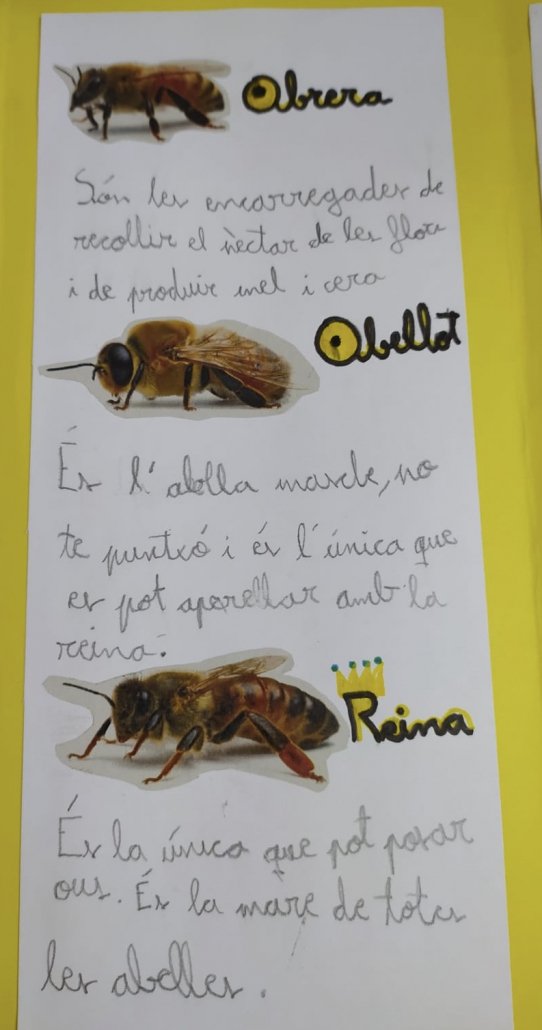 Obrera
Són les encarregades de
recollir el nèctar de les flors
i de produir mel i cera
Abellot
És l'abella mascle, no
te puntxó i és l'única que
es pot aparellar amb la
reina.
Reina
És la única que pot posar
ous. És la mare de totes
les abelles.